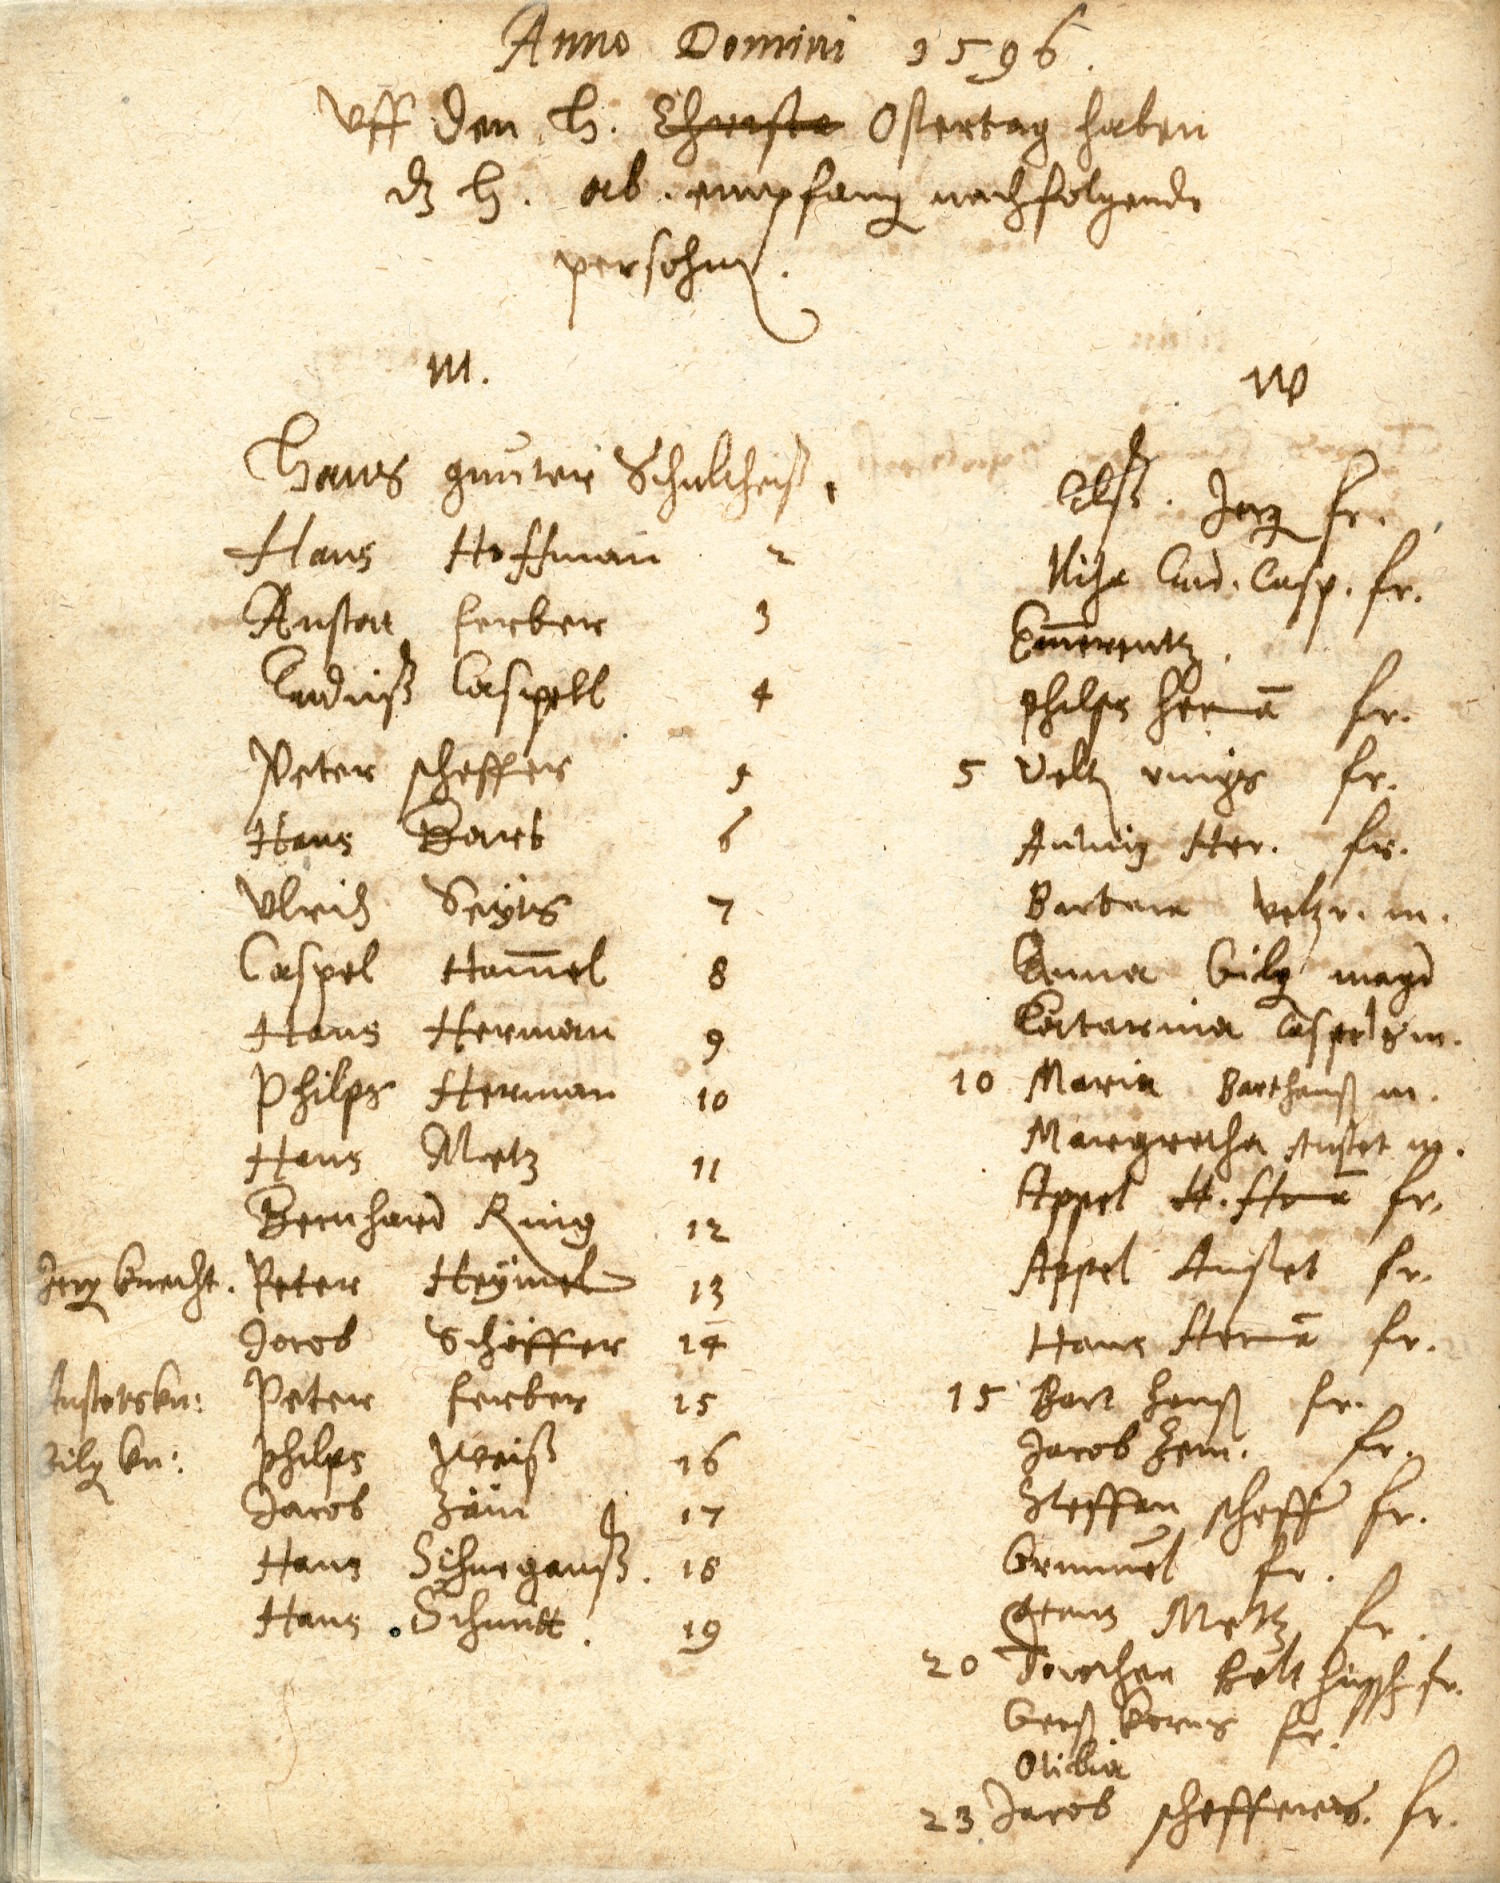 Anno Domini 1596.
Uff den H. Christa Ostertag haben
dz H. ab. empfang nachfolgende
persohn.
M.
Hans gunter Schultheiß.
Hans Hoffman 2
Anstat ferber 3
Caspell 4
Peter scheffer 5
Hans Bart 6
Ulrich Seyts 7
Caspel Ham̄el 8
Hans Herman 9
Philps Herman 10
Hans Metz 11
Bernhard Ring 12
Jerg knecht. Peter Heymel 13
Jacob Schöffer 14
Peter ferber 15
kn: philps Weiß 16
Jacob Zäin 17
Hans Schnegansß. 18
Hans Schmitt. 19
W
Elß. Jerg fr.
Casp. fr.
Em̄erentz.
philps Hermā fr.
5 Veltz fr.
Her. fr.
Barbara m.
Anna Gilg magd
Catarina Caspels m.
10 Maria Barthansß m.
Margretha Anstet m.
Appel H. Homā fr.
Appel Anstet fr.
Hans Hermā fr.
15 Bart Hansß fr.
Jacob Zein. fr.
Steffan scheff fr.
fr.
Hans Metz fr.
20 Dorothea fr.
fr.
Otilia
23 Jacob scheffers. fr.